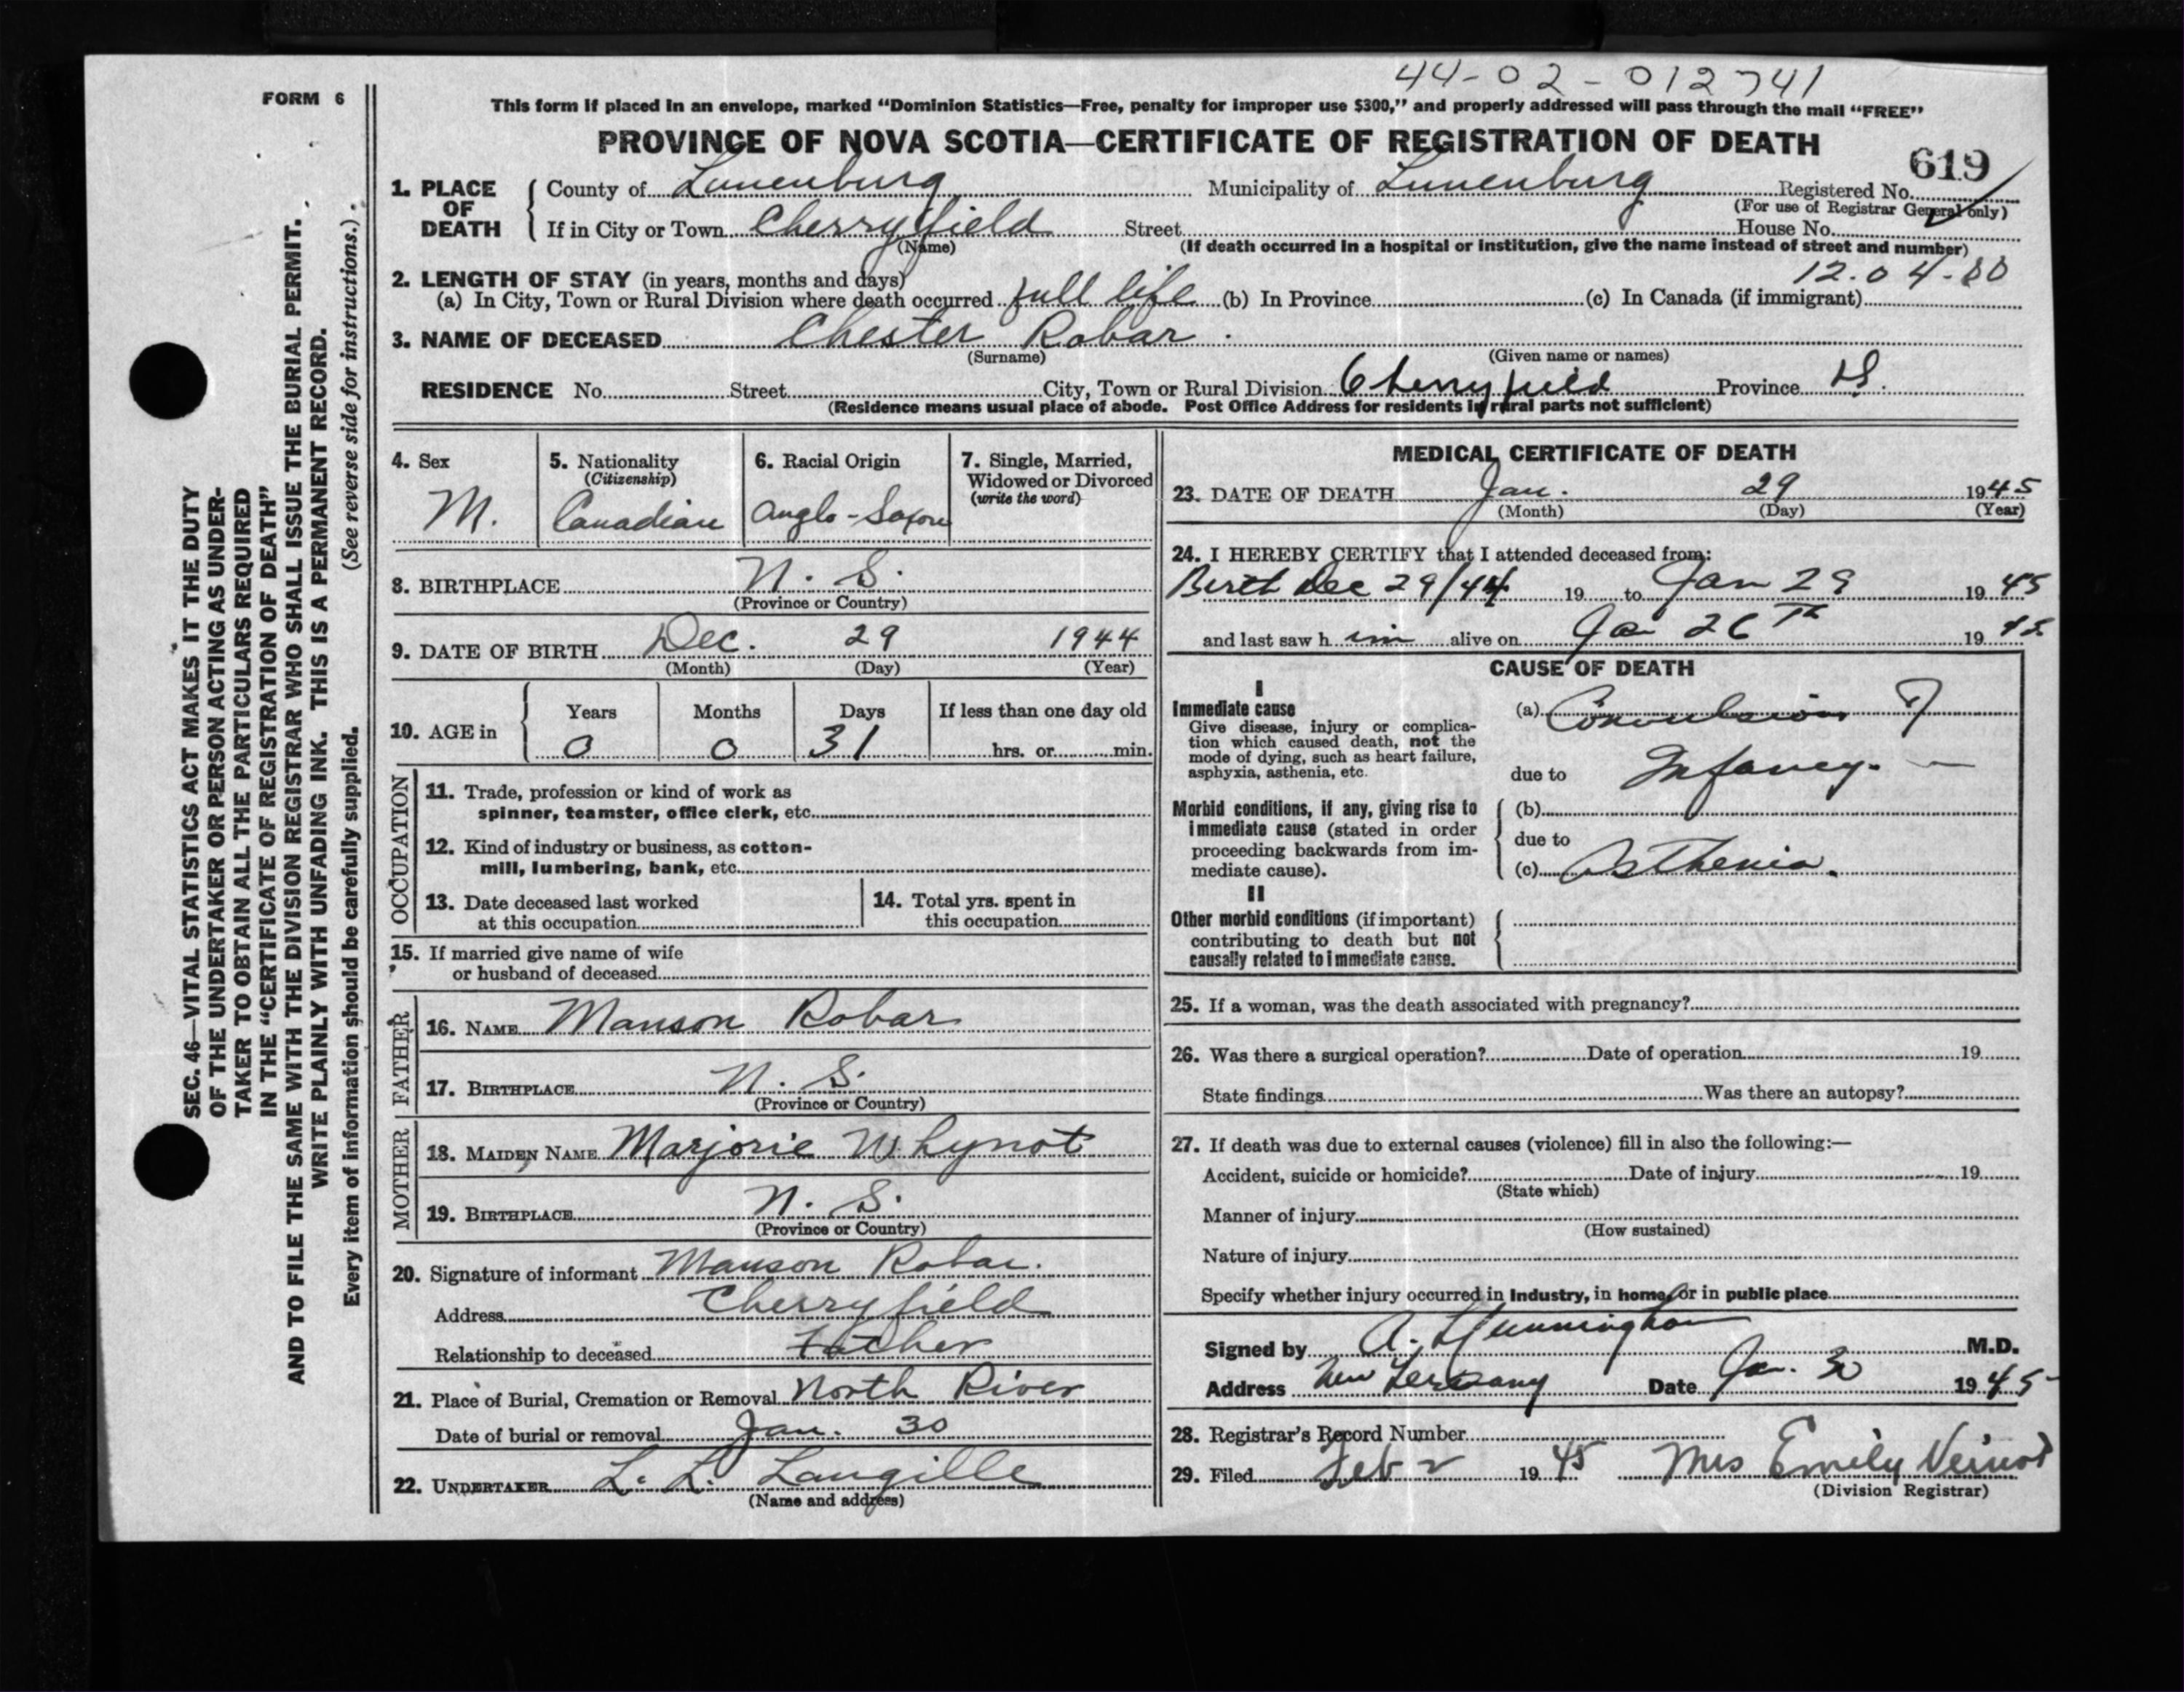 44-02-012741
FORM 6
This form if placed in an envelope, marked “Dominion Statistics—Free, penalty for improper use $300,” and properly addressed will pass through the mail “FREE”
PROVINCE OF NOVA SCOTIA—CERTIFICATE OF REGISTRATION OF DEATH
619
1. PLACE OF DEATH { County of Lunenburg Municipality of Lunenburg Registered No.
(For use of Registrar General only)
If in City or Town Cherryfield Street House No.
(Name) (If death occurred in a hospital or institution, give the name instead of street and number)
12.04-00
2. LENGTH OF STAY (in years, months and days)
(a) In City, Town or Rural Division where death occurred full life (b) In Province (c) In Canada (if immigrant)
3. NAME OF DECEASED Chester Robar
(Surname) (Given name or names)
RESIDENCE No. Street City, Town or Rural Division Cherryfield Province
(Residence means usual place of abode. Post Office Address for residents in rural parts not sufficient)
4. Sex M.
5. Nationality (Citizenship) Canadian
6. Racial Origin Anglo-Saxon
7. Single, Married, Widowed or Divorced (write the word)
8. BIRTHPLACE N. S.
(Province or Country)
9. DATE OF BIRTH Dec. 29 1944
(Month) (Day) (Year)
10. AGE in { Years Months Days If less than one day old
0 0 31 hrs. or min.
OCCUPATION
11. Trade, profession or kind of work as
spinner, teamster, office clerk, etc.
12. Kind of industry or business, as cotton-
mill, lumbering, bank, etc.
13. Date deceased last worked
at this occupation
14. Total yrs. spent in
this occupation
15. If married give name of wife
or husband of deceased
FATHER
16. NAME Manson Robar
17. BIRTHPLACE N. S.
(Province or Country)
MOTHER
18. MAIDEN NAME Marjorie Whynot
19. BIRTHPLACE N. S.
(Province or Country)
20. Signature of informant Manson Robar.
Address Cherryfield
Relationship to deceased Father
21. Place of Burial, Cremation or Removal North River
Date of burial or removal Jan. 30
22. UNDERTAKER L. L. Langille
(Name and address)
MEDICAL CERTIFICATE OF DEATH
23. DATE OF DEATH Jan. 29 1945
(Month) (Day) (Year)
24. I HEREBY CERTIFY that I attended deceased from:
Birth Dec 29/44 19 to Jan 29 1945
and last saw him alive on Jan 26th 1945
CAUSE OF DEATH
I
Immediate cause
Give disease, injury or complica-
tion which caused death, not the
mode of dying, such as heart failure,
asphyxia, asthenia, etc.
(a) Convulsions of
due to Infancy.
Morbid conditions, if any, giving rise to
immediate cause (stated in order
proceeding backwards from im-
mediate cause).
(b)
due to
(c) Asthenia.
II
Other morbid conditions (if important)
contributing to death but not
causally related to immediate cause.
25. If a woman, was the death associated with pregnancy?
26. Was there a surgical operation? Date of operation 19
State findings Was there an autopsy?
27. If death was due to external causes (violence) fill in also the following:—
Accident, suicide or homicide? Date of injury 19
(State which)
Manner of injury
(How sustained)
Nature of injury
Specify whether injury occurred in Industry, in home, or in public place
Signed by A. Cunningham M.D.
Address New Germany Date Jan. 30 1945
28. Registrar's Record Number
29. Filed Feb 2 1945 Mrs Emily Veinot
(Division Registrar)
SEC. 46—VITAL STATISTICS ACT MAKES IT THE DUTY
OF THE UNDERTAKER OR PERSON ACTING AS UNDER-
TAKER TO OBTAIN ALL THE PARTICULARS REQUIRED
IN THE “CERTIFICATE OF REGISTRATION OF DEATH”
AND TO FILE THE SAME WITH THE DIVISION REGISTRAR WHO SHALL ISSUE THE BURIAL PERMIT.
WRITE PLAINLY WITH UNFADING INK. THIS IS A PERMANENT RECORD.
Every item of information should be carefully supplied. (See reverse side for instructions.)